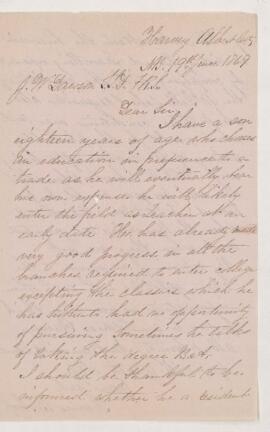 Harvey Albert Co
NB. 19th June 1869
J. W. Dawson LLD. F.R.S.
Dear Sir,
I have a son
eighteen years of age who chooses
an education in preference to a
trade as he will eventually bear
his own expense he will likely
enter the field as teacher at an
early date He has already made
very good progress in all the
branches required to enter college
excepting the classics which he
has hitherto had no opportunity
of pursuing sometimes he talks
of taking the degree B.A.
I should be thankful to be
informed whether he a resident